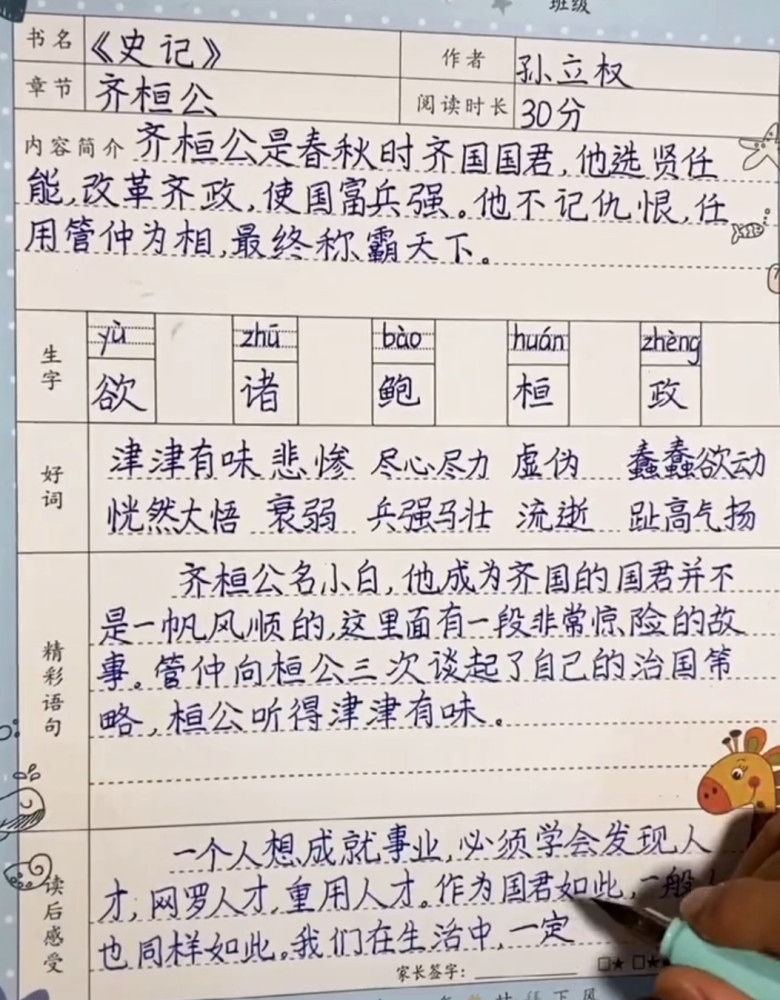 班级
书名 《史记》 作者 孙立权
章节 齐桓公 阅读时长 30分
内容简介 齐桓公是春秋时齐国国君,他选贤任
能,改革齐政,使国富兵强。他不记仇恨,任
用管仲为相,最终称霸天下。
生字
yù zhū bào huán zhèng
欲 诸 鲍 桓 政
好词
津津有味 悲惨 尽心尽力 虚伪 蠢蠢欲动
恍然大悟 衰弱 兵强马壮 流逝 趾高气扬
精彩语句
齐桓公名小白,他成为齐国的国君并不
是一帆风顺的,这里面有一段非常惊险的故
事。管仲向桓公三次谈起了自己的治国策
略,桓公听得津津有味。
读后感受
一个人想成就事业,必须学会发现人
才,网罗人才,重用人才。作为国君如此,一般人
也同样如此。我们在生活中,一定
家长签字: